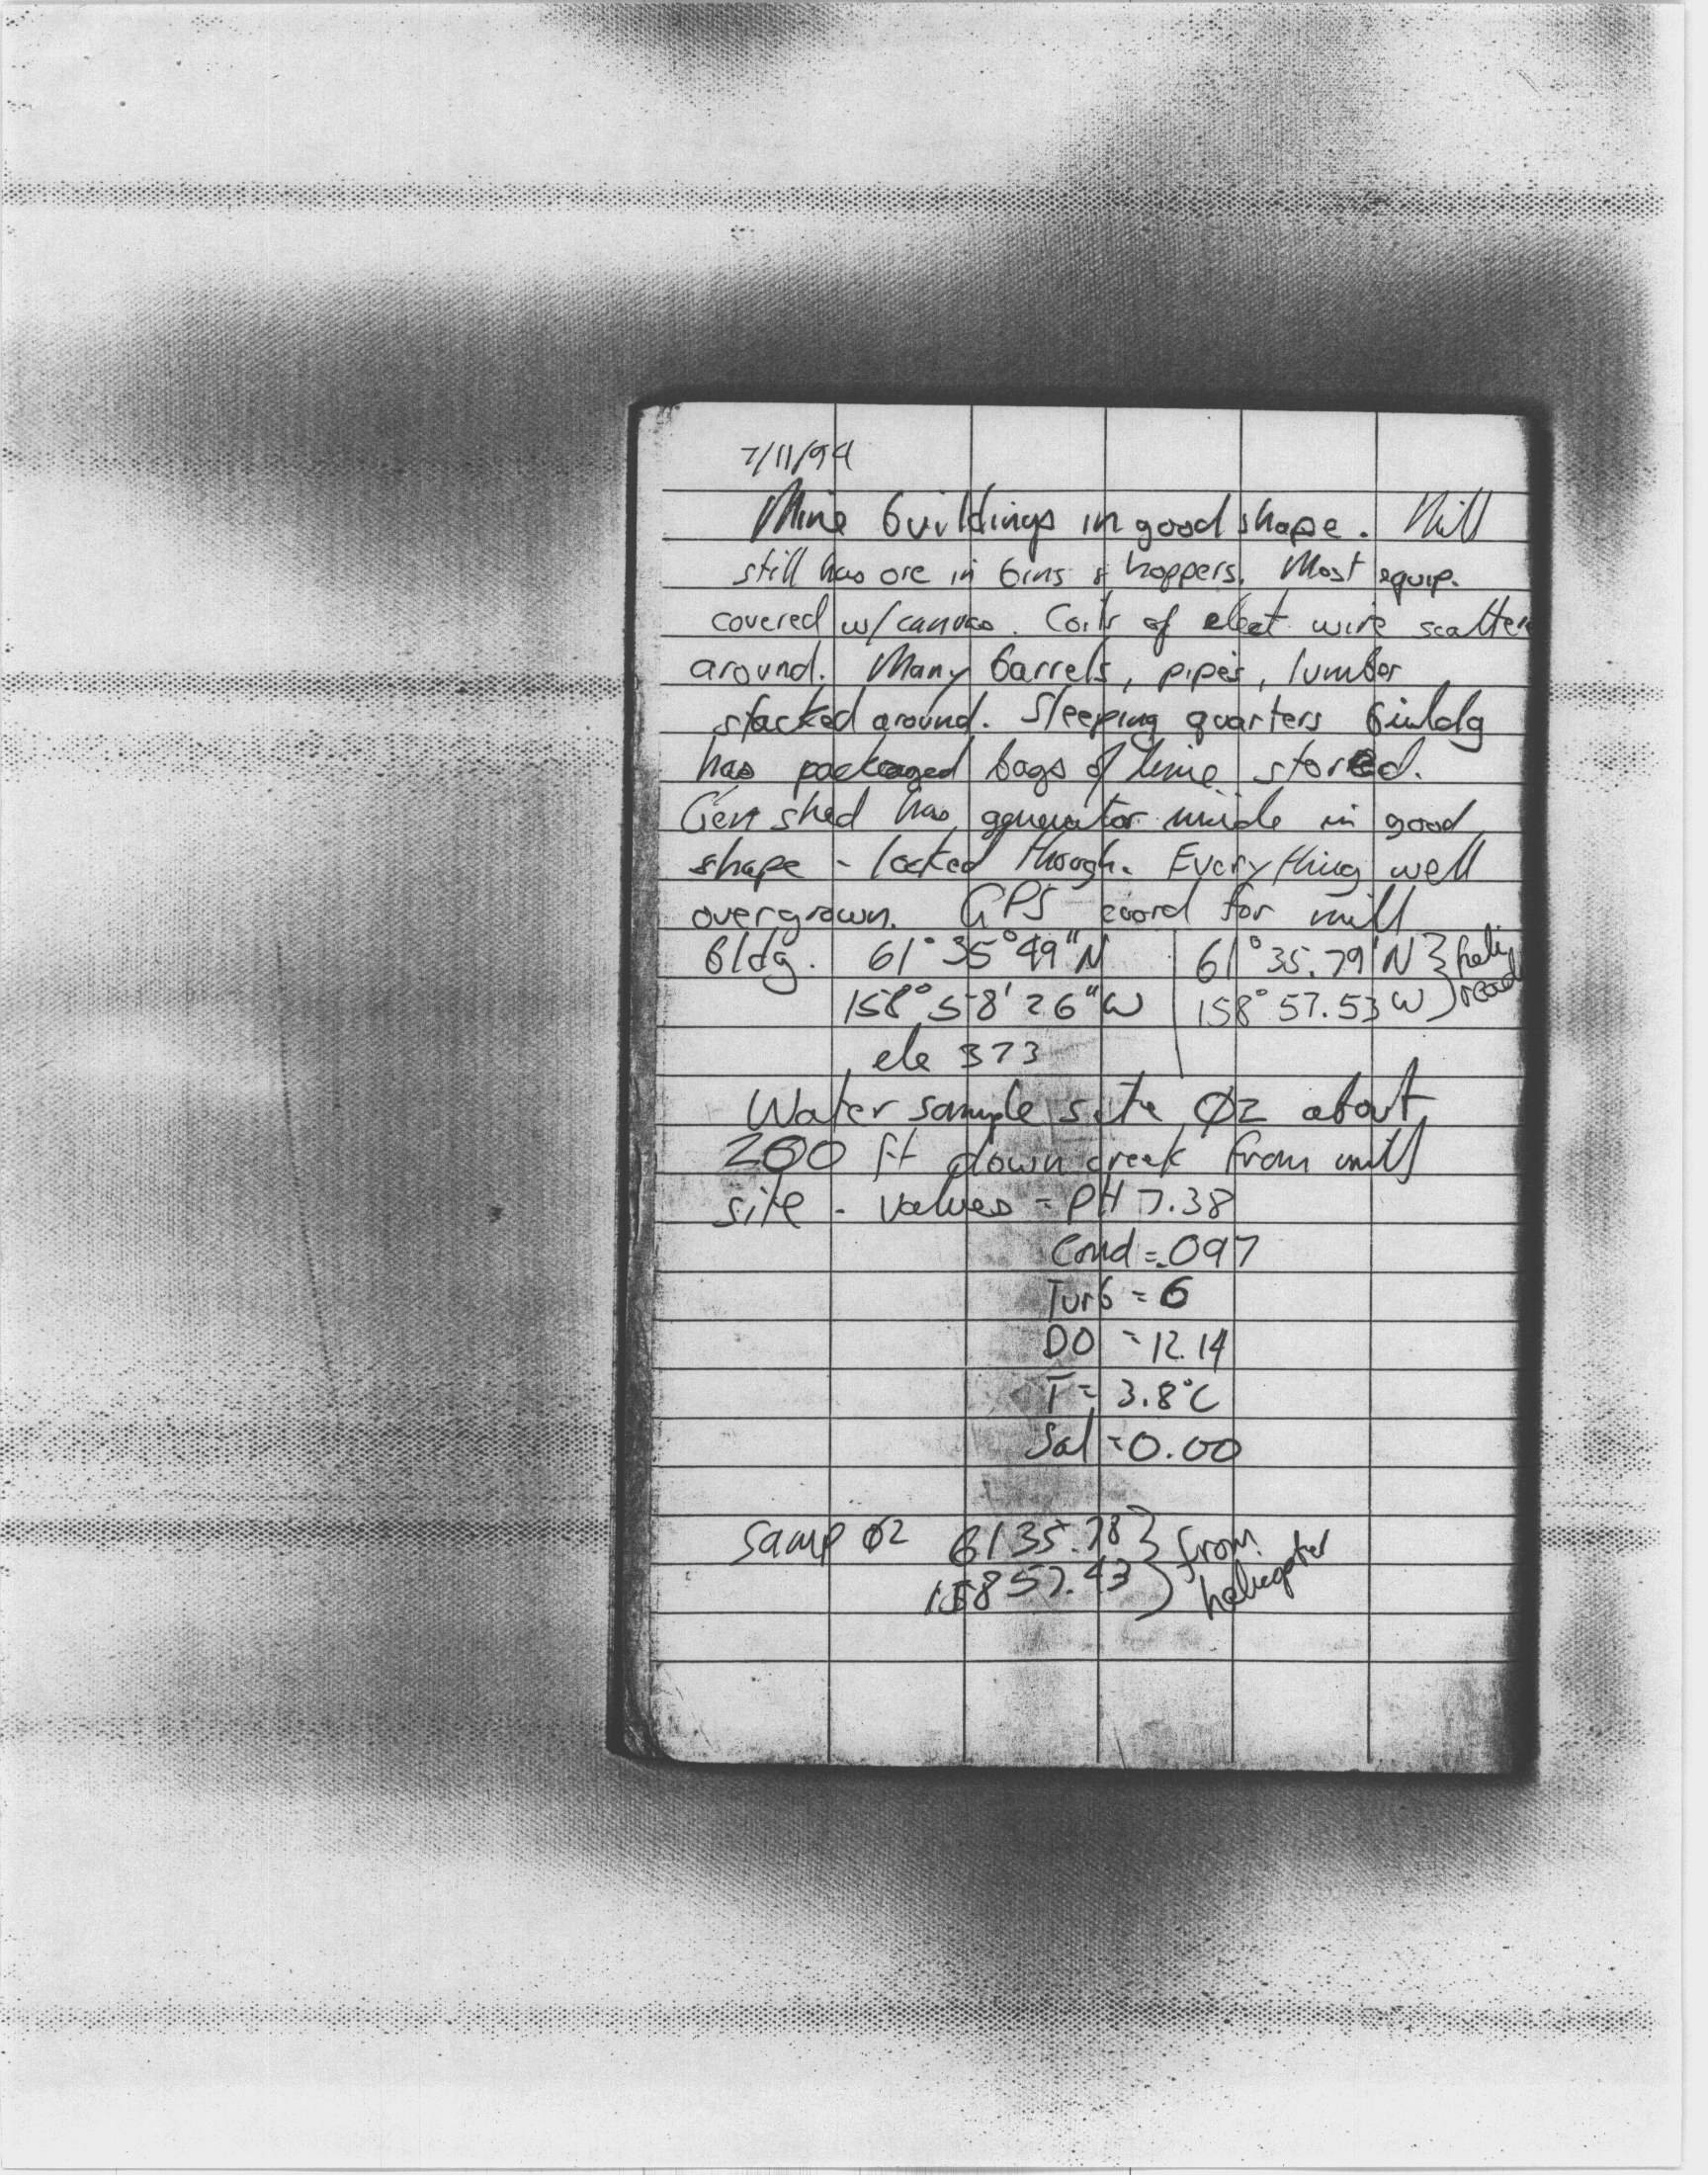 7/11/94
Mine buildings in good shape. Mill
still has ore in bins & hoppers. Most equip.
covered w/canvas. Coils of elect wire scatter
around. Many barrels, pipes, lumber
stacked around. Sleeping quarters buildg
has packaged bags of lime stored.
Gen shed has generator inside in good
shape - locked though. Everything well
overgrown. GPS coord for mill
bldg. 61° 35° 49" N | 61° 35.79' N } heli
158° 58' 26" W | 158° 57.53 W } read
ele 373
Water sample site Ø2 about
200 ft down creek from mill
site - values - PH 7.38
Cond = .097
Turb = 6
DO = 12.14
T = 3.8°C
Sal = 0.00
Samp Ø2 61 35.78 } from
158 57.43 } helicopter